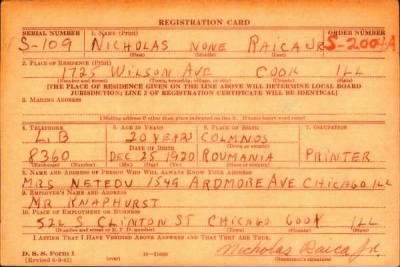 REGISTRATION CARD
SERIAL NUMBER 1. NAME (Print) ORDER NUMBER
S-109 NICHOLAS NONE RAICA JR S-2004A
(First) (Middle) (Last)
2. PLACE OF RESIDENCE (Print)
1725 WILSON AVE COOK ILL
(Number and street) (Town, township, village, or city) (County) (State)
[THE PLACE OF RESIDENCE GIVEN ON THE LINE ABOVE WILL DETERMINE LOCAL BOARD
JURISDICTION; LINE 2 OF REGISTRATION CERTIFICATE WILL BE IDENTICAL]
3. MAILING ADDRESS
[Mailing address if other than place indicated on line 2. If same insert word same]
4. TELEPHONE 5. AGE IN YEARS 6. PLACE OF BIRTH 7. OCCUPATION
L.B 20 YEARS COLMNOS
DATE OF BIRTH
8360 DEC 25 1920 ROUMANIA PRINTER
(Exchange) (Number) (Mo.) (Day) (Yr.) (State or country)
8. NAME AND ADDRESS OF PERSON WHO WILL ALWAYS KNOW YOUR ADDRESS
MRS NETEDU 1549 ARDMORE AVE CHICAGO ILL
9. EMPLOYER'S NAME AND ADDRESS
MR KNAPHURST
10. PLACE OF EMPLOYMENT OR BUSINESS
522 S CLINTON ST CHICAGO COOK ILL
(Number and street or R. F. D. number) (Town) (County) (State)
I AFFIRM THAT I HAVE VERIFIED ABOVE ANSWERS AND THAT THEY ARE TRUE.
D. S. S. Form 1
Nicholas Raica Jr.